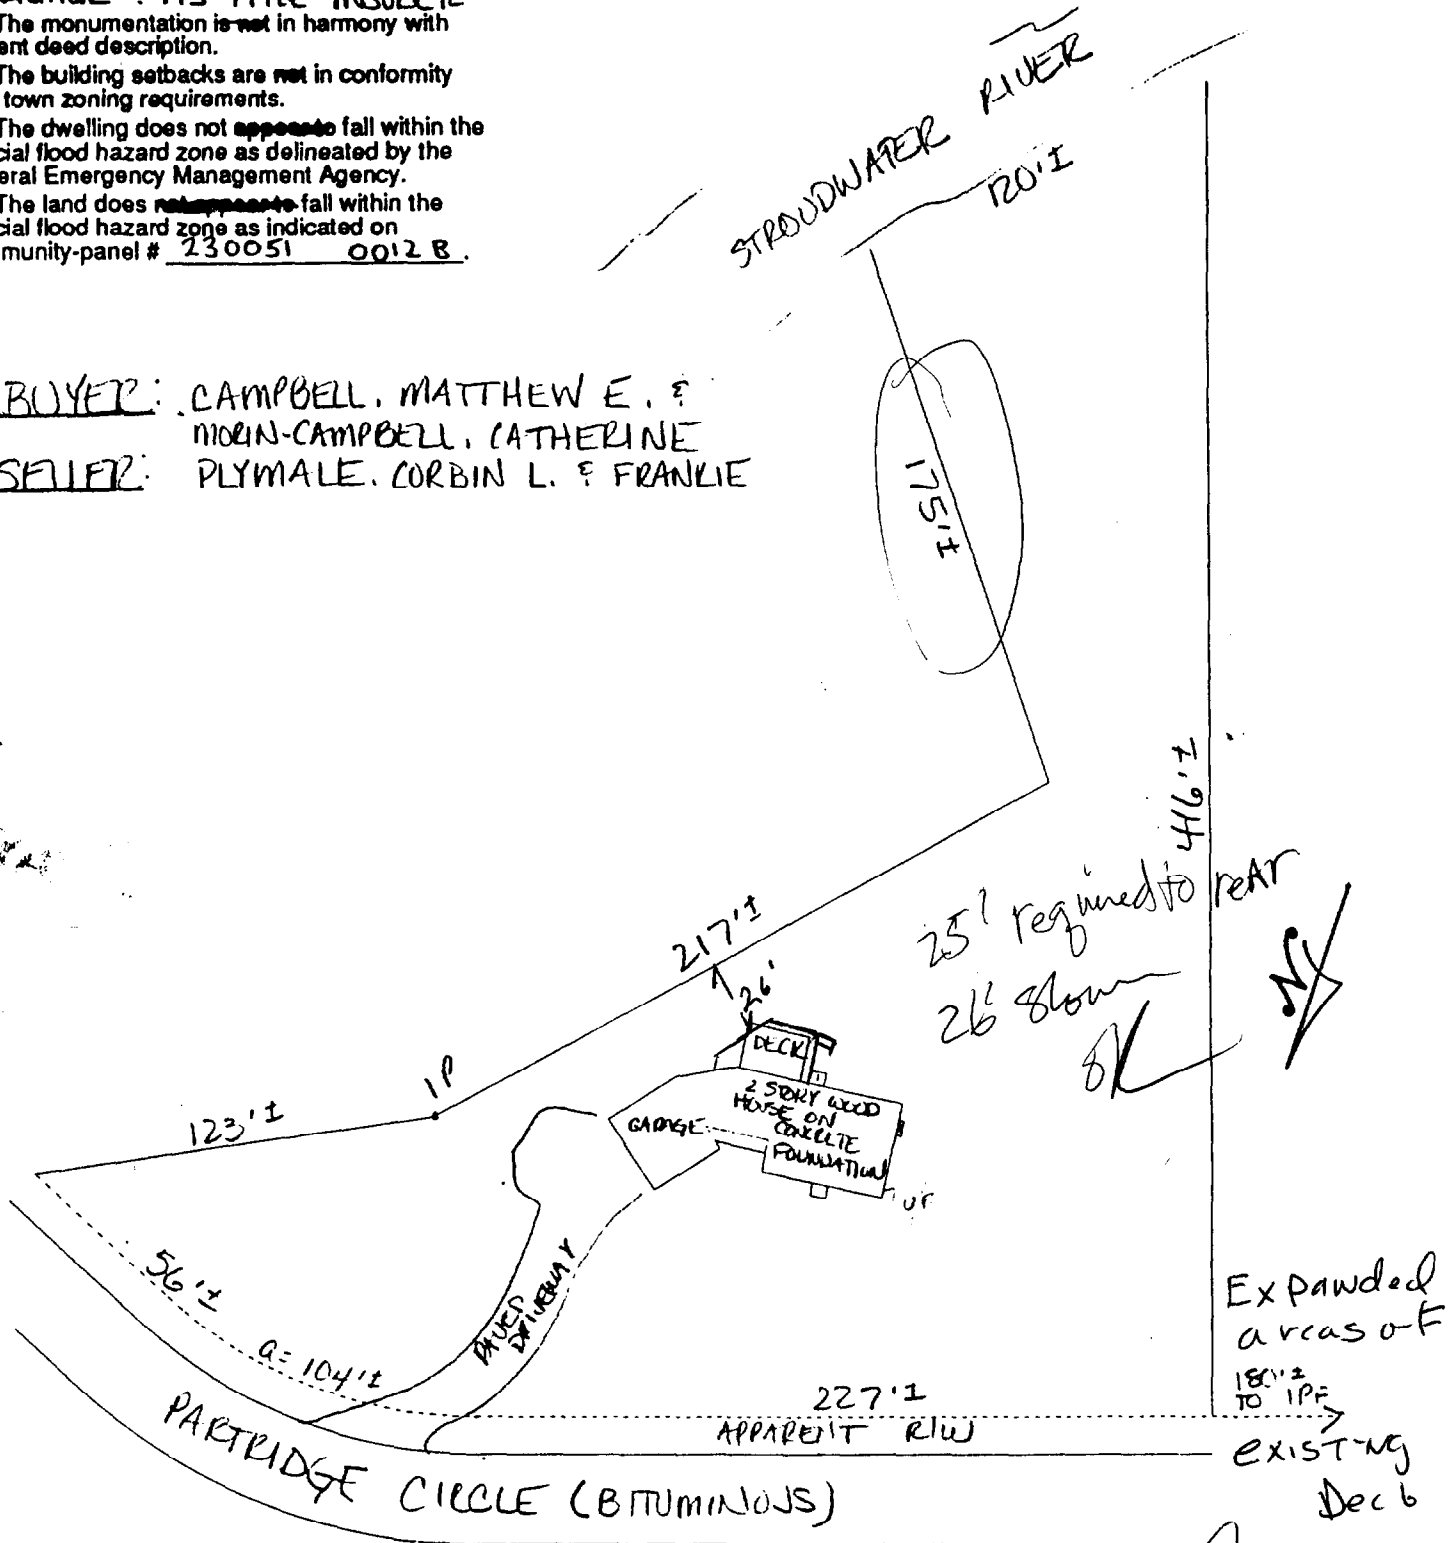 The monumentation is not in harmony with
ent deed description.
The building setbacks are not in conformity
town zoning requirements.
The dwelling does not appear to fall within the
cial flood hazard zone as delineated by the
eral Emergency Management Agency.
The land does not appear to fall within the
cial flood hazard zone as indicated on
munity-panel # 230051 0012 B.
STROUDWATER RIVER
120'±
BUYER: CAMPBELL, MATTHEW E. &
MORIN-CAMPBELL, CATHERINE
SELLER: PLYMALE, CORBIN L. & FRANKIE
175'±
416'±
25' required to reAr
26' Shown
OK
N
217'±
26'
DECK
IP
123'±
2 STORY WOOD
HOUSE ON
CONCRETE
FOUNDATION
GARAGE
UP
56'±
PAVED
DRIVEWAY
a= 104'±
Expanded
areas of
180'±
TO IPF
227'±
APPARENT R/W
existing
Deck
PARTRIDGE CIRCLE (BITUMINOUS)